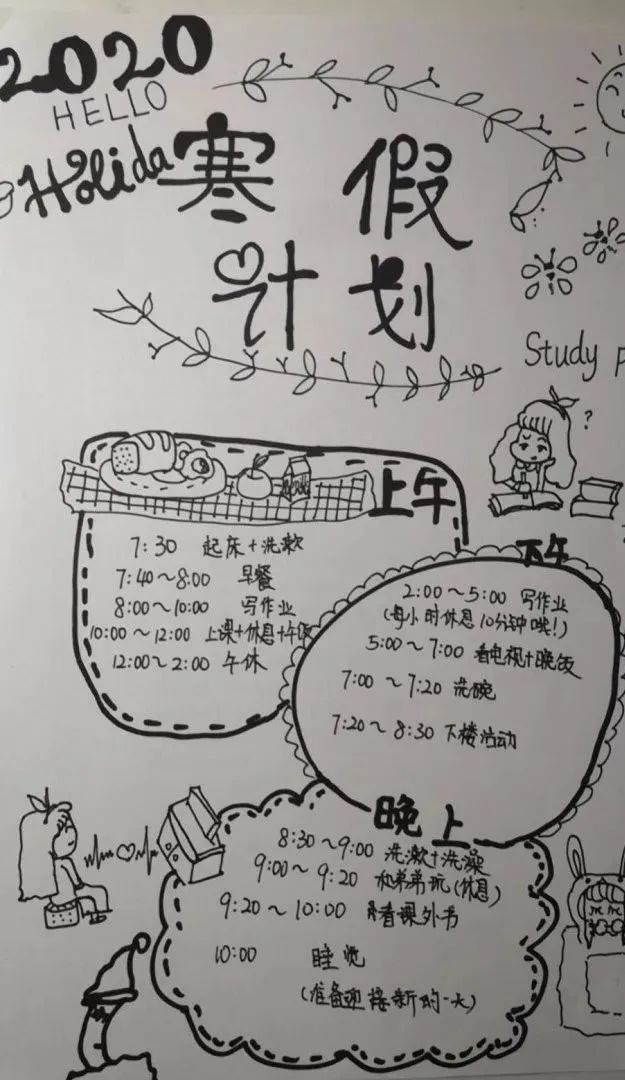 2020
HELLO
Holida
寒假
计划
Study p
?
上午
7:30 起床+洗漱
7:40~8:00 早餐
8:00~10:00 写作业
10:00~12:00 上课+休息+午饭
12:00~2:00 午休
下午
2:00~5:00 写作业
(每小时休息10分钟哦!)
5:00~7:00 看电视+晚饭
7:00~7:20 洗碗
7:20~8:30 下楼活动
晚上
8:30~9:00 洗漱+洗澡
9:00~9:20 和弟弟玩(休息)
9:20~10:00 看课外书
10:00 睡觉
(准备迎接新的一天)